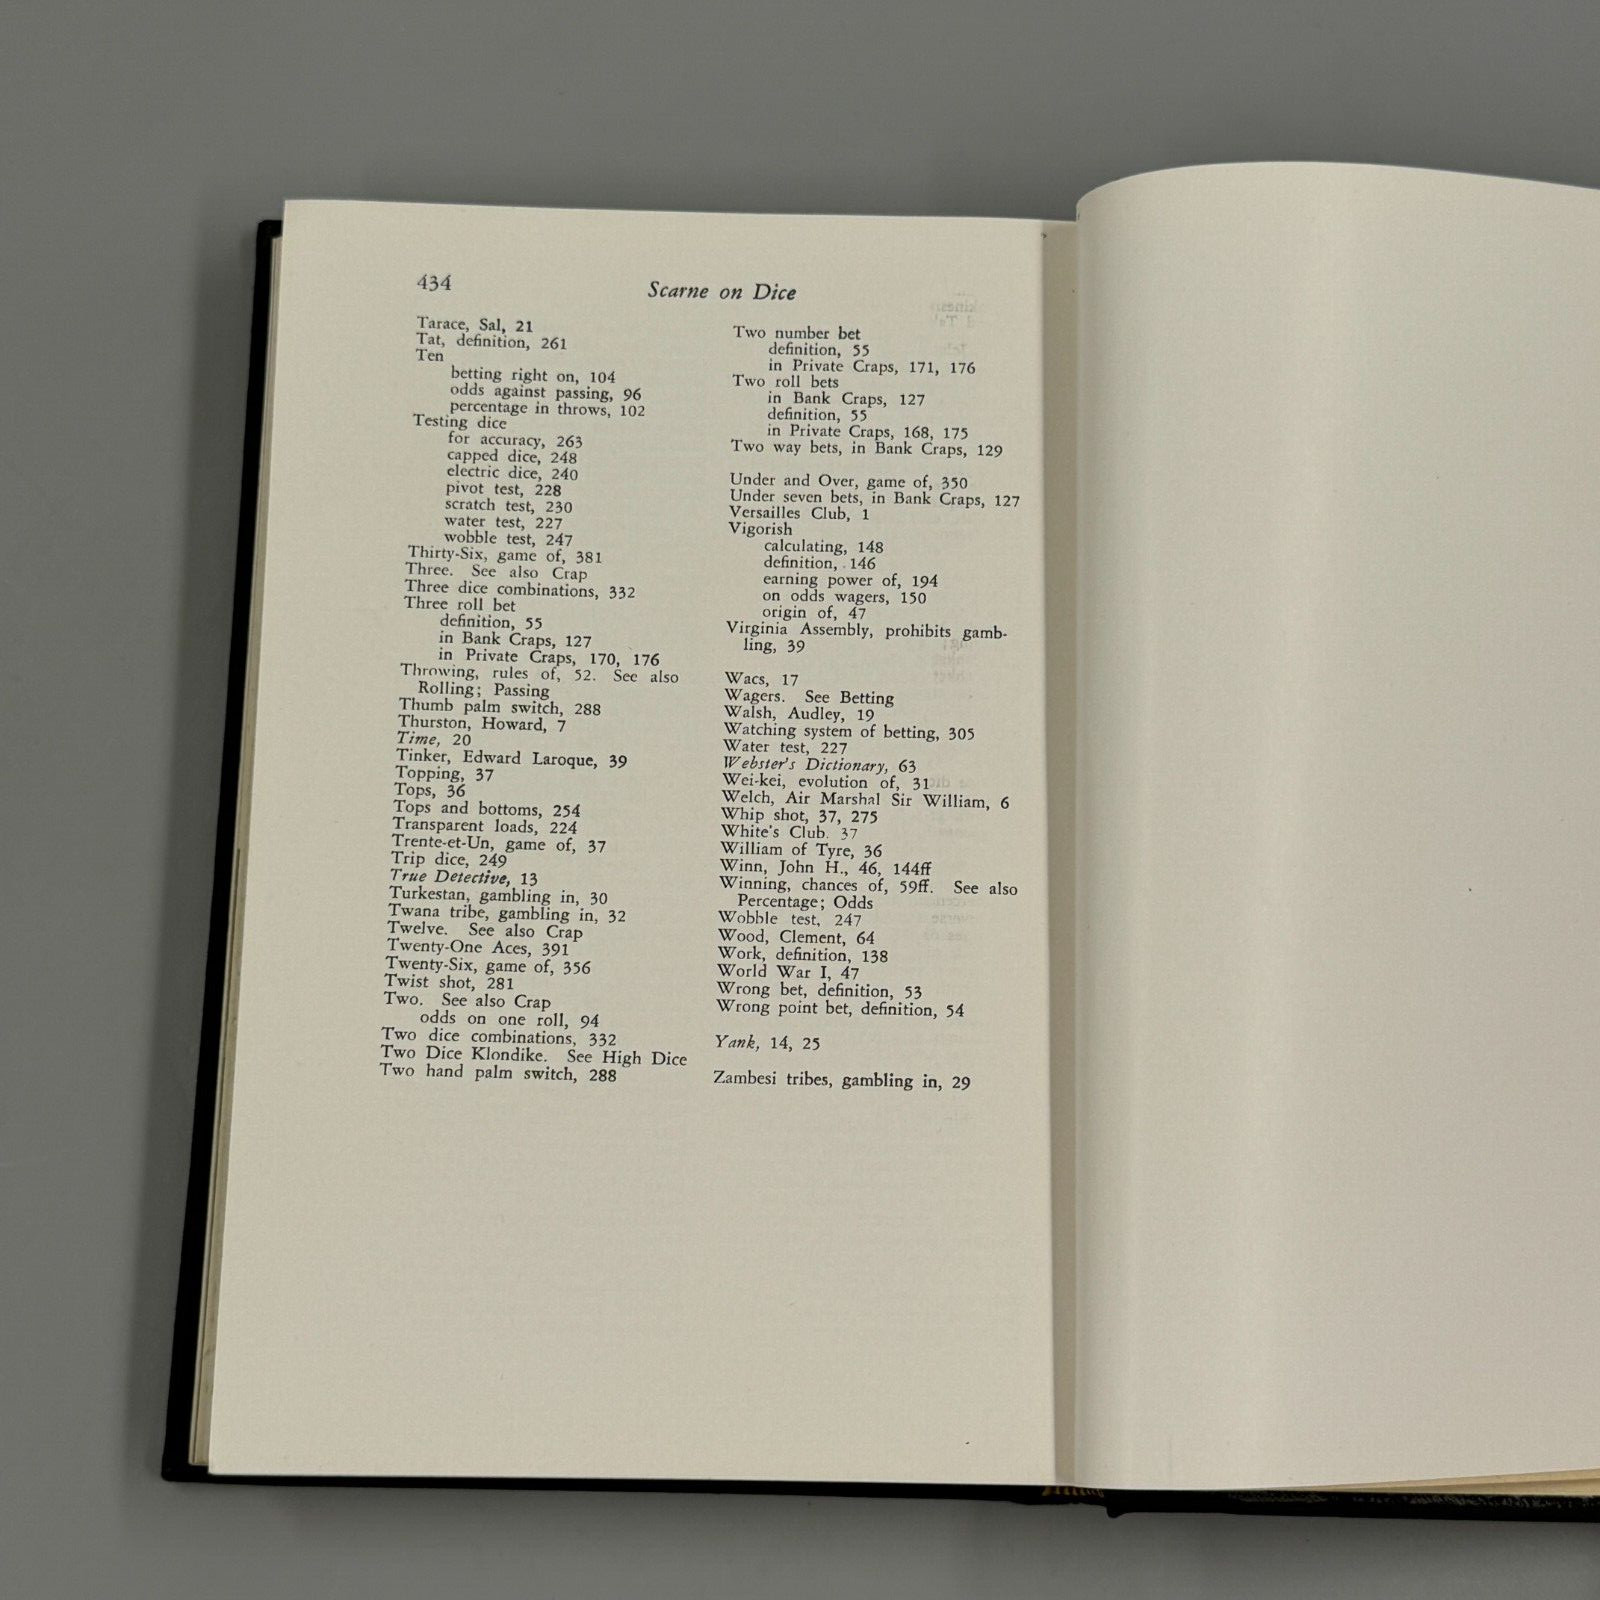 434
Scarne on Dice
Tarace, Sal, 21
Tat, definition, 261
Ten
betting right on, 104
odds against passing, 96
percentage in throws, 102
Testing dice
for accuracy, 263
capped dice, 248
electric dice, 240
pivot test, 228
scratch test, 230
water test, 227
wobble test, 247
Thirty-Six, game of, 381
Three. See also Crap
Three dice combinations, 332
Three roll bet
definition, 55
in Bank Craps, 127
in Private Craps, 170, 176
Throwing, rules of, 52. See also
Rolling; Passing
Thumb palm switch, 288
Thurston, Howard, 7
Time, 20
Tinker, Edward Laroque, 39
Topping, 37
Tops, 36
Tops and bottoms, 254
Transparent loads, 224
Trente-et-Un, game of, 37
Trip dice, 249
True Detective, 13
Turkestan, gambling in, 30
Twana tribe, gambling in, 32
Twelve. See also Crap
Twenty-One Aces, 391
Twenty-Six, game of, 356
Twist shot, 281
Two. See also Crap
odds on one roll, 94
Two dice combinations, 332
Two Dice Klondike. See High Dice
Two hand palm switch, 288
Two number bet
definition, 55
in Private Craps, 171, 176
Two roll bets
in Bank Craps, 127
definition, 55
in Private Craps, 168, 175
Two way bets, in Bank Craps, 129
Under and Over, game of, 350
Under seven bets, in Bank Craps, 127
Versailles Club, 1
Vigorish
calculating, 148
definition, 146
earning power of, 194
on odds wagers, 150
origin of, 47
Virginia Assembly, prohibits gamb-
ling, 39
Wacs, 17
Wagers. See Betting
Walsh, Audley, 19
Watching system of betting, 305
Water test, 227
Webster's Dictionary, 63
Wei-kei, evolution of, 31
Welch, Air Marshal Sir William, 6
Whip shot, 37, 275
White's Club. 37
William of Tyre, 36
Winn, John H., 46, 144ff
Winning, chances of, 59ff. See also
Percentage; Odds
Wobble test, 247
Wood, Clement, 64
Work, definition, 138
World War I, 47
Wrong bet, definition, 53
Wrong point bet, definition, 54
Yank, 14, 25
Zambesi tribes, gambling in, 29